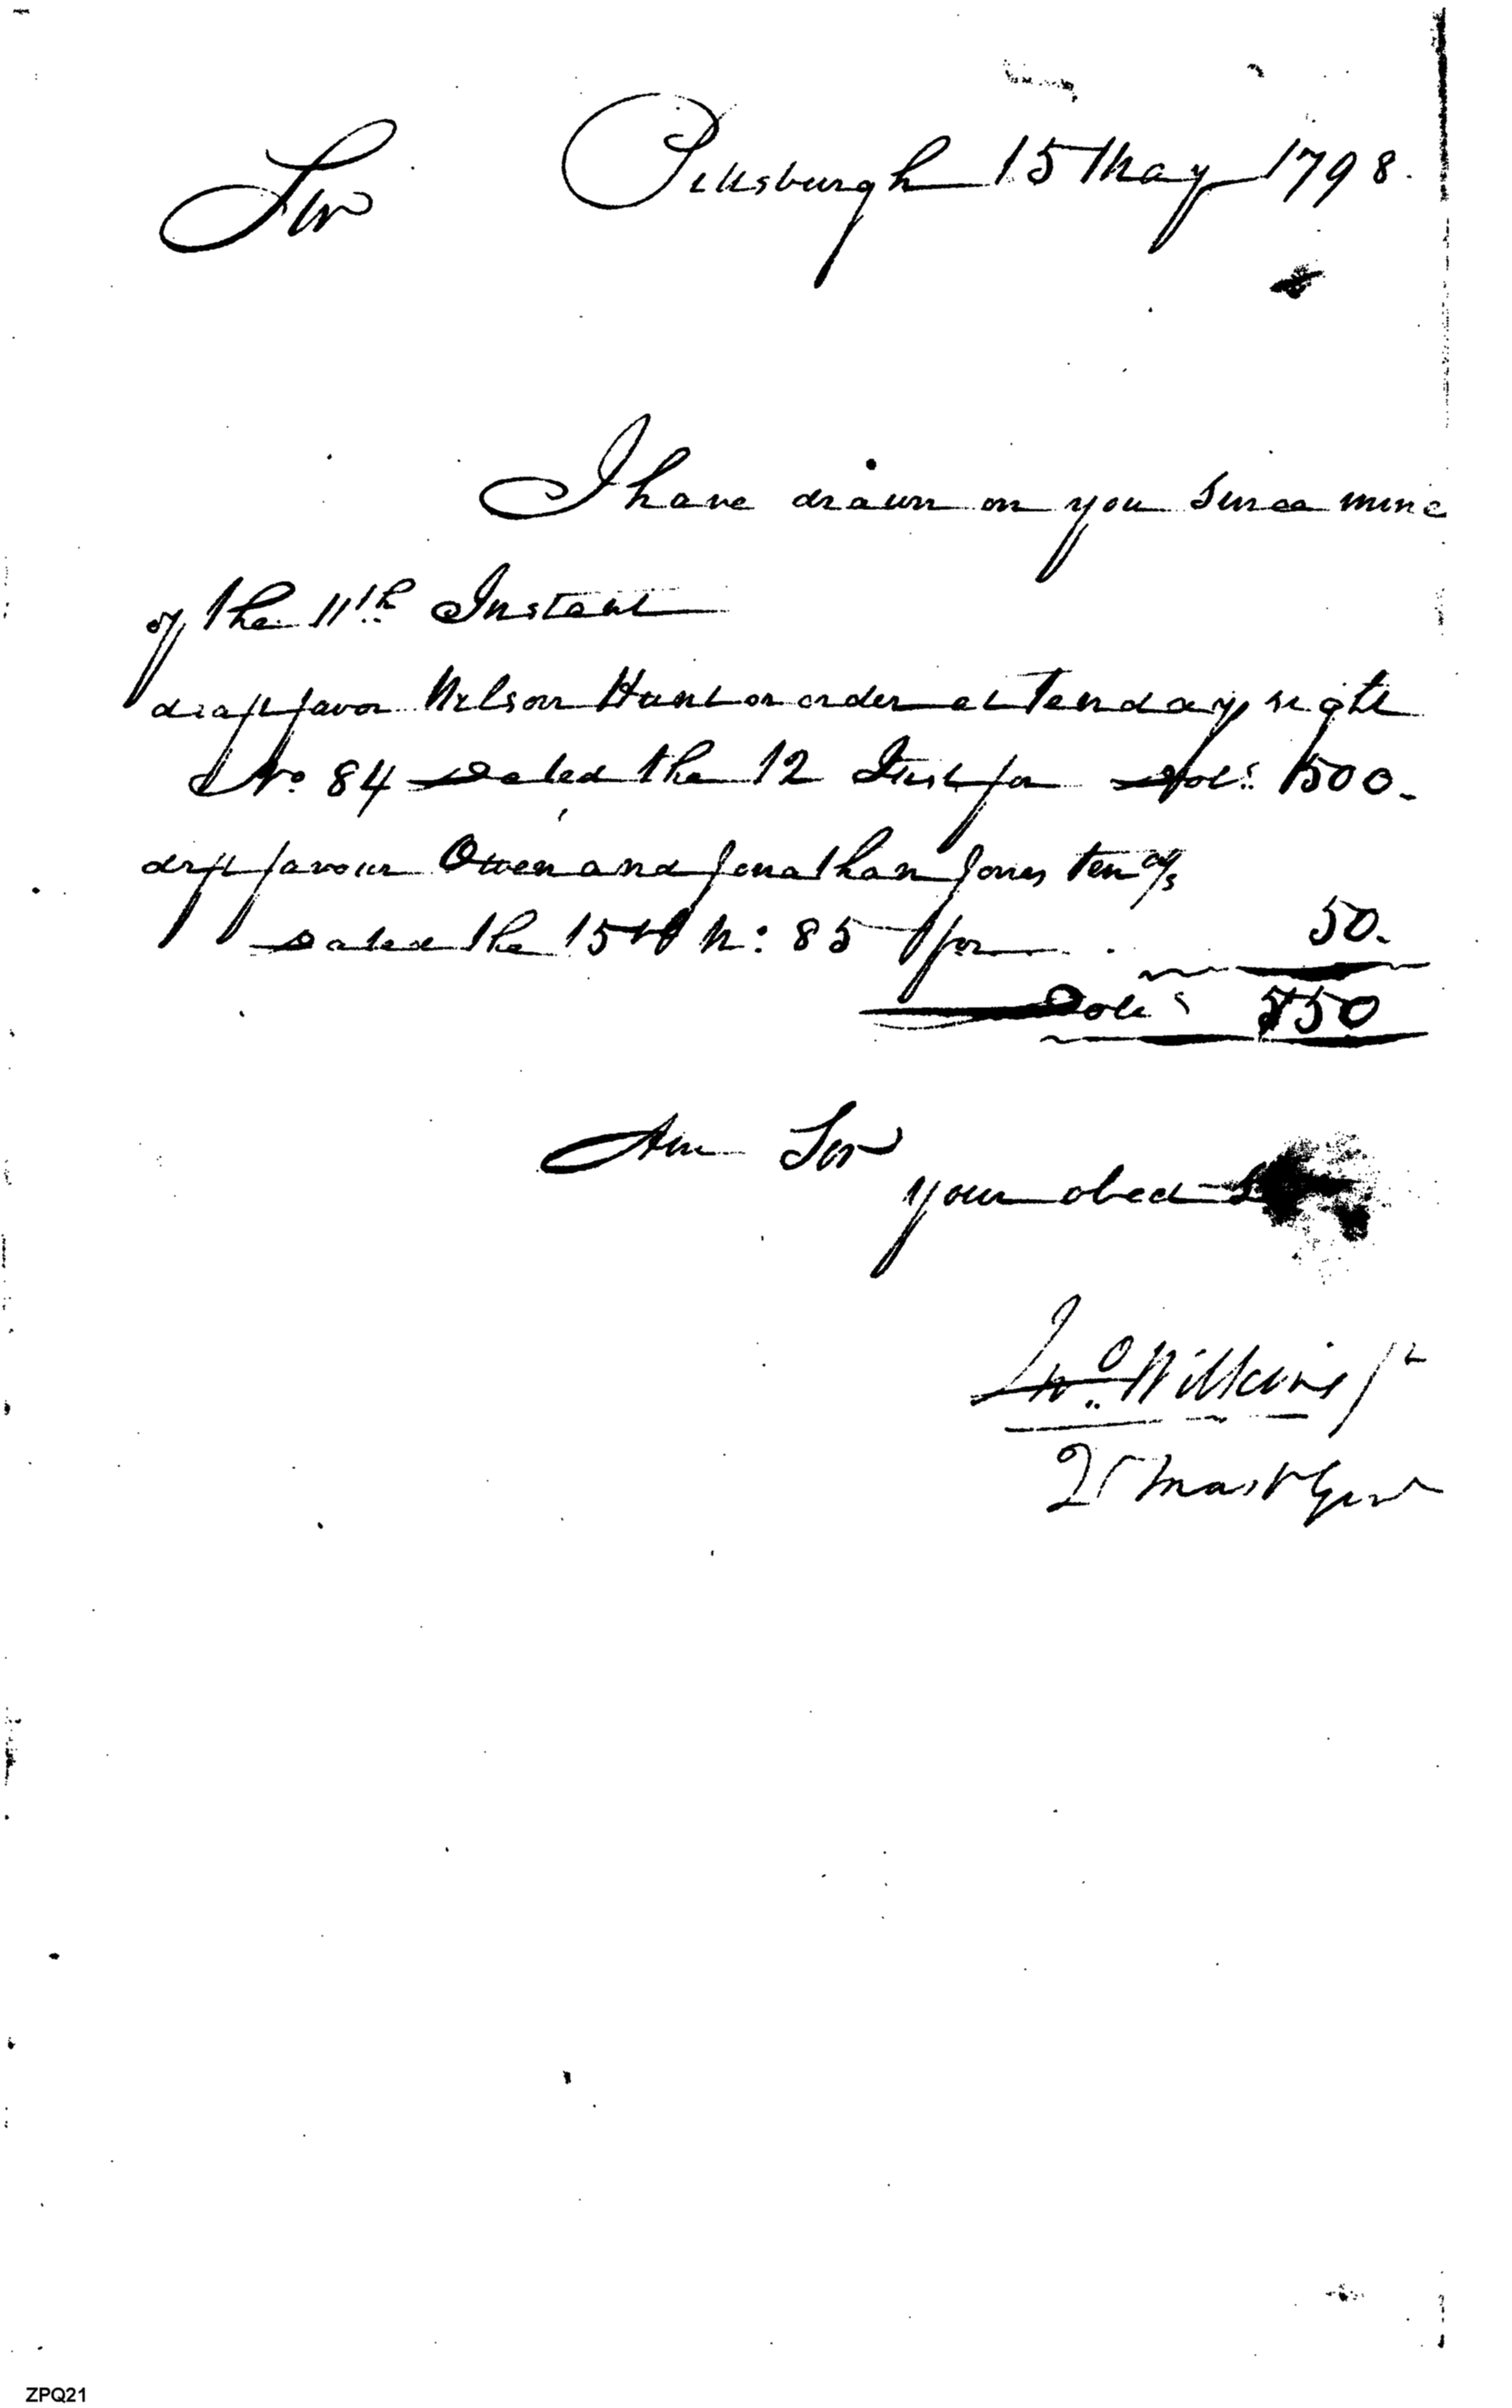 Sir Pittsburgh 15 May 1798.
I have drawn on you since mine
of the 11th Instant
draft favor Nelson Hunt or order at Ten days sight
No. 84 Dated the 12 Inst for Dols. 500.
drft favour Owen and Jonathan Jones ten d/s
Dated the 15th N: 85 for 50.
Dols 550
Am Sir
your obed
Jno. Wilkins Jr
Qr Mast Genl
ZPQ21